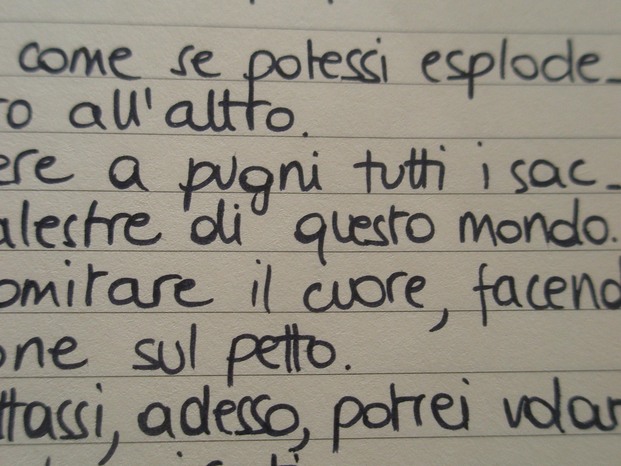 come se potessi esplode-
ro all'altro.
ere a pugni tutti i sac-
alestre di questo mondo.
omitare il cuore, facend
one sul petto.
ttassi, adesso, potrei volar